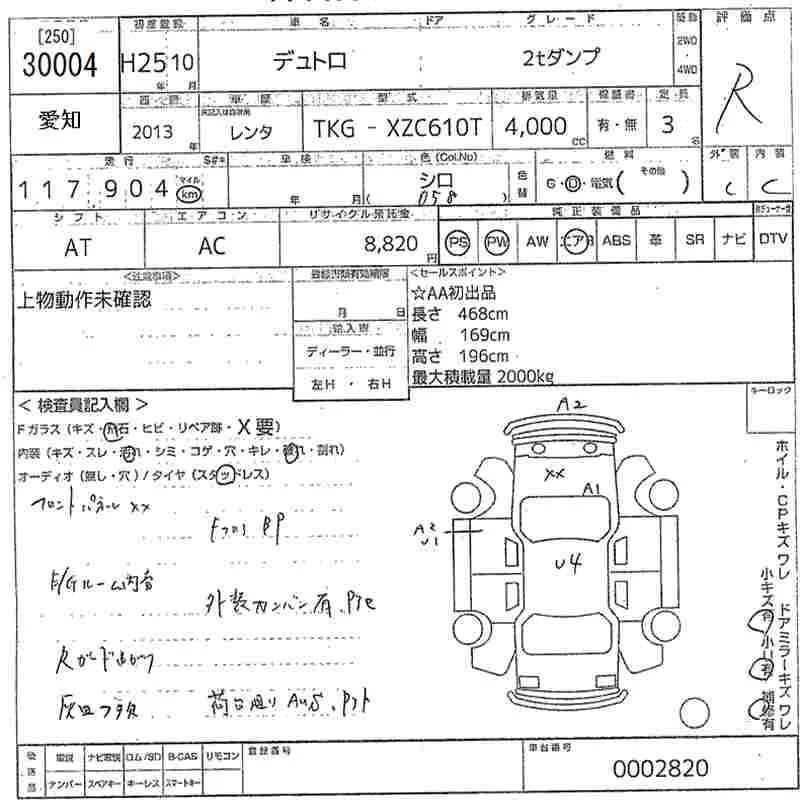 [250]
30004
初度登録
車名
ドア
グレード
評価点
H25 10
年 月
デュトロ
2tダンプ
2WD
4WD
R
愛知
車歴
型式
排気量
保証書
定員
2013
年
レンタ
TKG - XZC610T
4,000
cc
有・無
3
名
走行
S#*
車検
色(Col.No)
燃料
外装
内装
117904
マイル
km
年 月
シロ
( 058 )
色替
G・D・電気( その他 )
C
C
シフト
エアコン
リサイクル預託金
純正装備品
AT
AC
8,820
円
PS
PW
AW
エアB
ABS
革
SR
ナビ
DTV
<注意事項>
登録書類有効期限
<セールスポイント>
上物動作未確認
月 日
☆AA初出品
長さ 468cm
輸入車
幅 169cm
ディーラー・並行
高さ 196cm
左H ・ 右H
最大積載量 2000kg
キーロック
< 検査員記入欄 >
Fガラス (キズ・飛石・ヒビ・リペア跡・X要)
内装 (キズ・スレ・汚れ・シミ・コゲ・穴・キレ・破れ・割れ)
オーディオ (無し・穴) / タイヤ (スタッドレス)
フロントパネル XX
E/Gルーム内
外装カンバン有
灰皿フタ欠
荷台廻り
A2
XX
A1
A2
U1
U4
ホイル・CPキズワレ
ドアミラーキズワレ
小キズ有
小凹有
補修有
後送品
取説
ナビ取説
ロム/SD
B-CAS
リモコン
ナンバー
スペアキー
キーレス
スマートキー
登録番号
車台番号
0002820